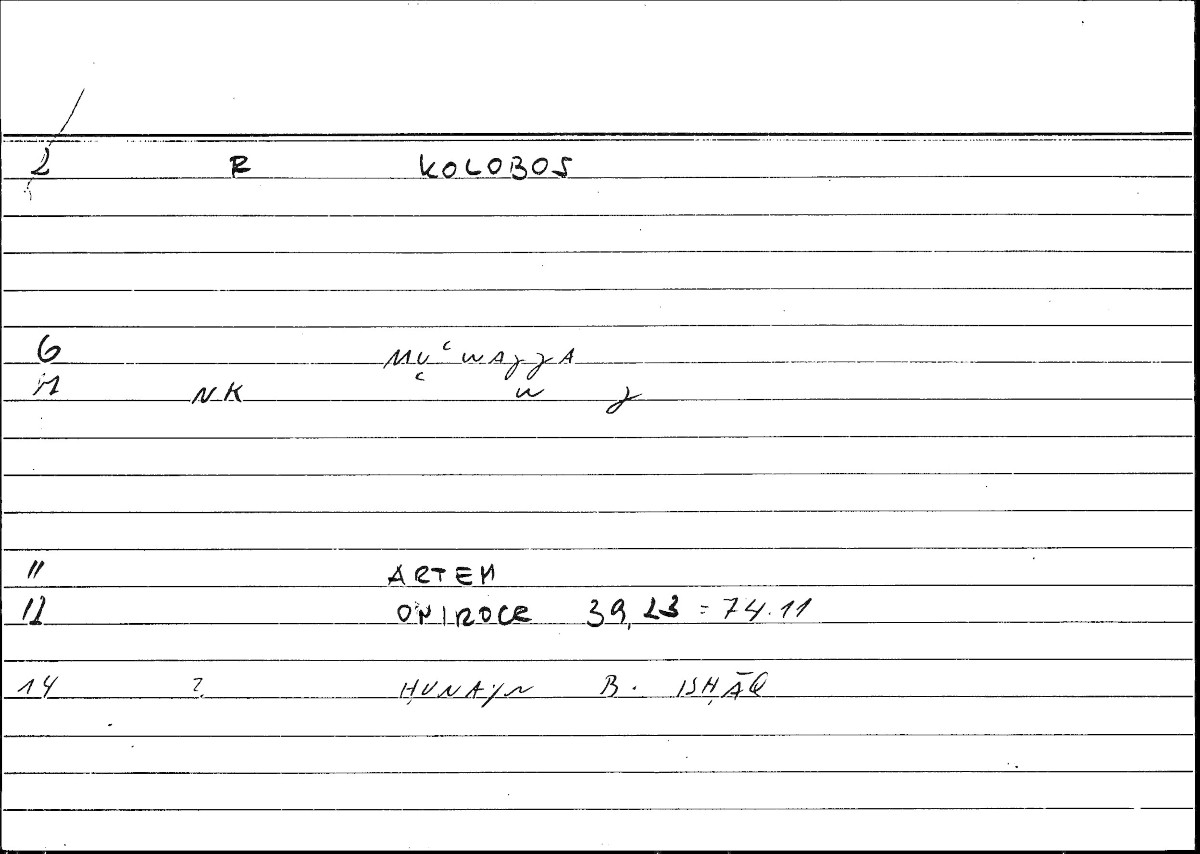 2 R KOLOBOS
6 MUʿWAJJA
NK ʿ W J
11 ARTEM
12 ONIROCR 39,23 = 74.11
14 ? ḤUNAYN B. ISḤĀQ